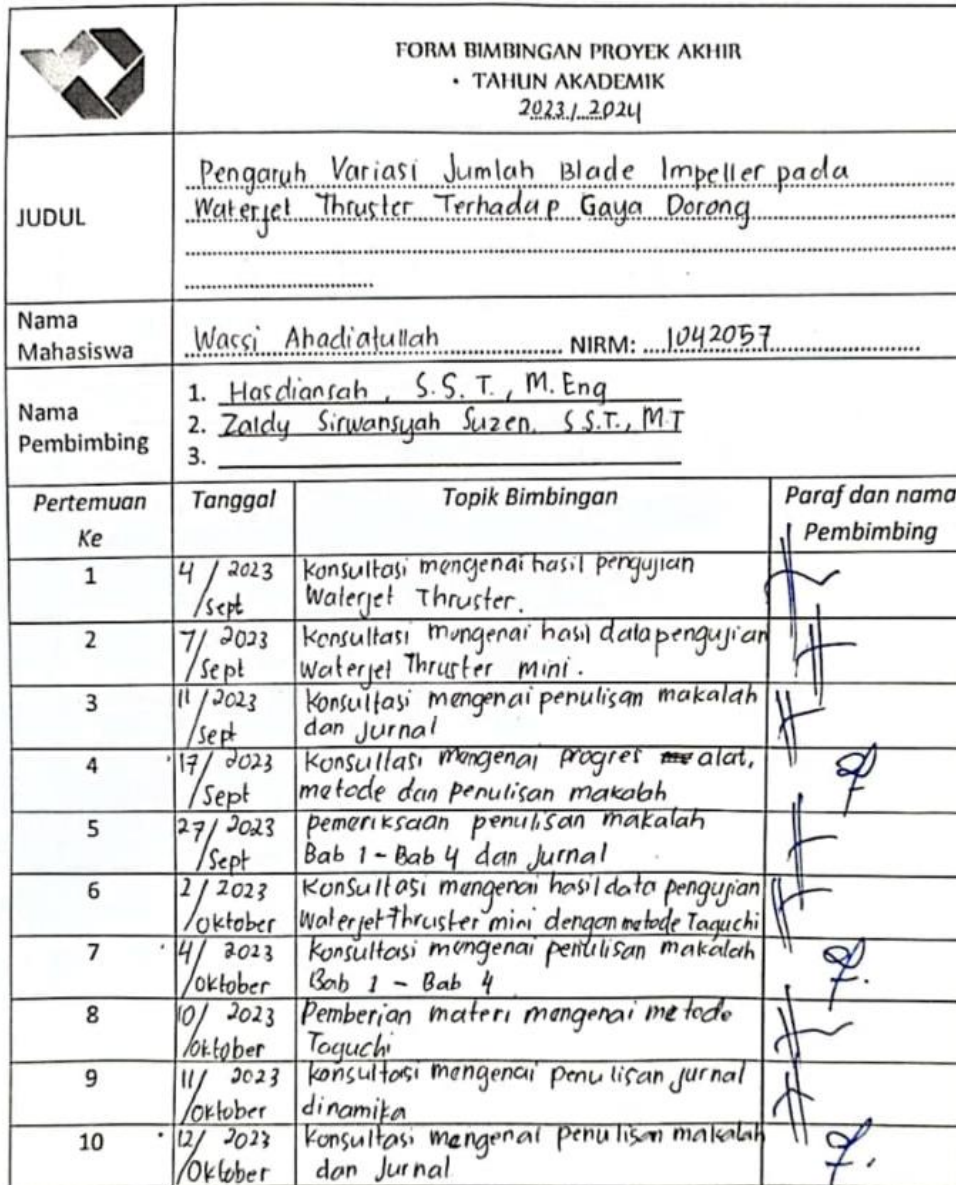 FORM BIMBINGAN PROYEK AKHIR
TAHUN AKADEMIK
2023/2024
JUDUL
Pengaruh Variasi Jumlah Blade Impeller pada
Waterjet Thruster Terhadap Gaya Dorong
Nama
Mahasiswa
Wassi Ahadiatullah NIRM: 1042057
Nama
Pembimbing
1. Hasdiansah, S.S.T., M.Eng
2. Zaldy Sirwansyah Suzen, S.S.T., M.T
3.
Pertemuan
Ke
Tanggal
Topik Bimbingan
Paraf dan nama
Pembimbing
1 4/Sept 2023
Konsultasi mengenai hasil pengujian
Waterjet Thruster.
2 7/Sept 2023
Konsultasi mengenai hasil data pengujian
Waterjet Thruster mini.
3 11/Sept 2023
Konsultasi mengenai penulisan makalah
dan Jurnal
4 17/Sept 2023
Konsultasi mengenai progres alat,
metode dan penulisan makalah
5 27/Sept 2023
pemeriksaan penulisan makalah
Bab 1 - Bab 4 dan Jurnal
6 2/Oktober 2023
Konsultasi mengenai hasil data pengujian
Waterjet Thruster mini dengan metode Taguchi
7 4/Oktober 2023
Konsultasi mengenai penulisan makalah
Bab 1 - Bab 4
8 10/Oktober 2023
Pemberian materi mengenai metode
Taguchi
9 11/Oktober 2023
Konsultasi mengenai penulisan jurnal
dinamika
10 12/Oktober 2023
Konsultasi mengenai penulisan makalah
dan Jurnal